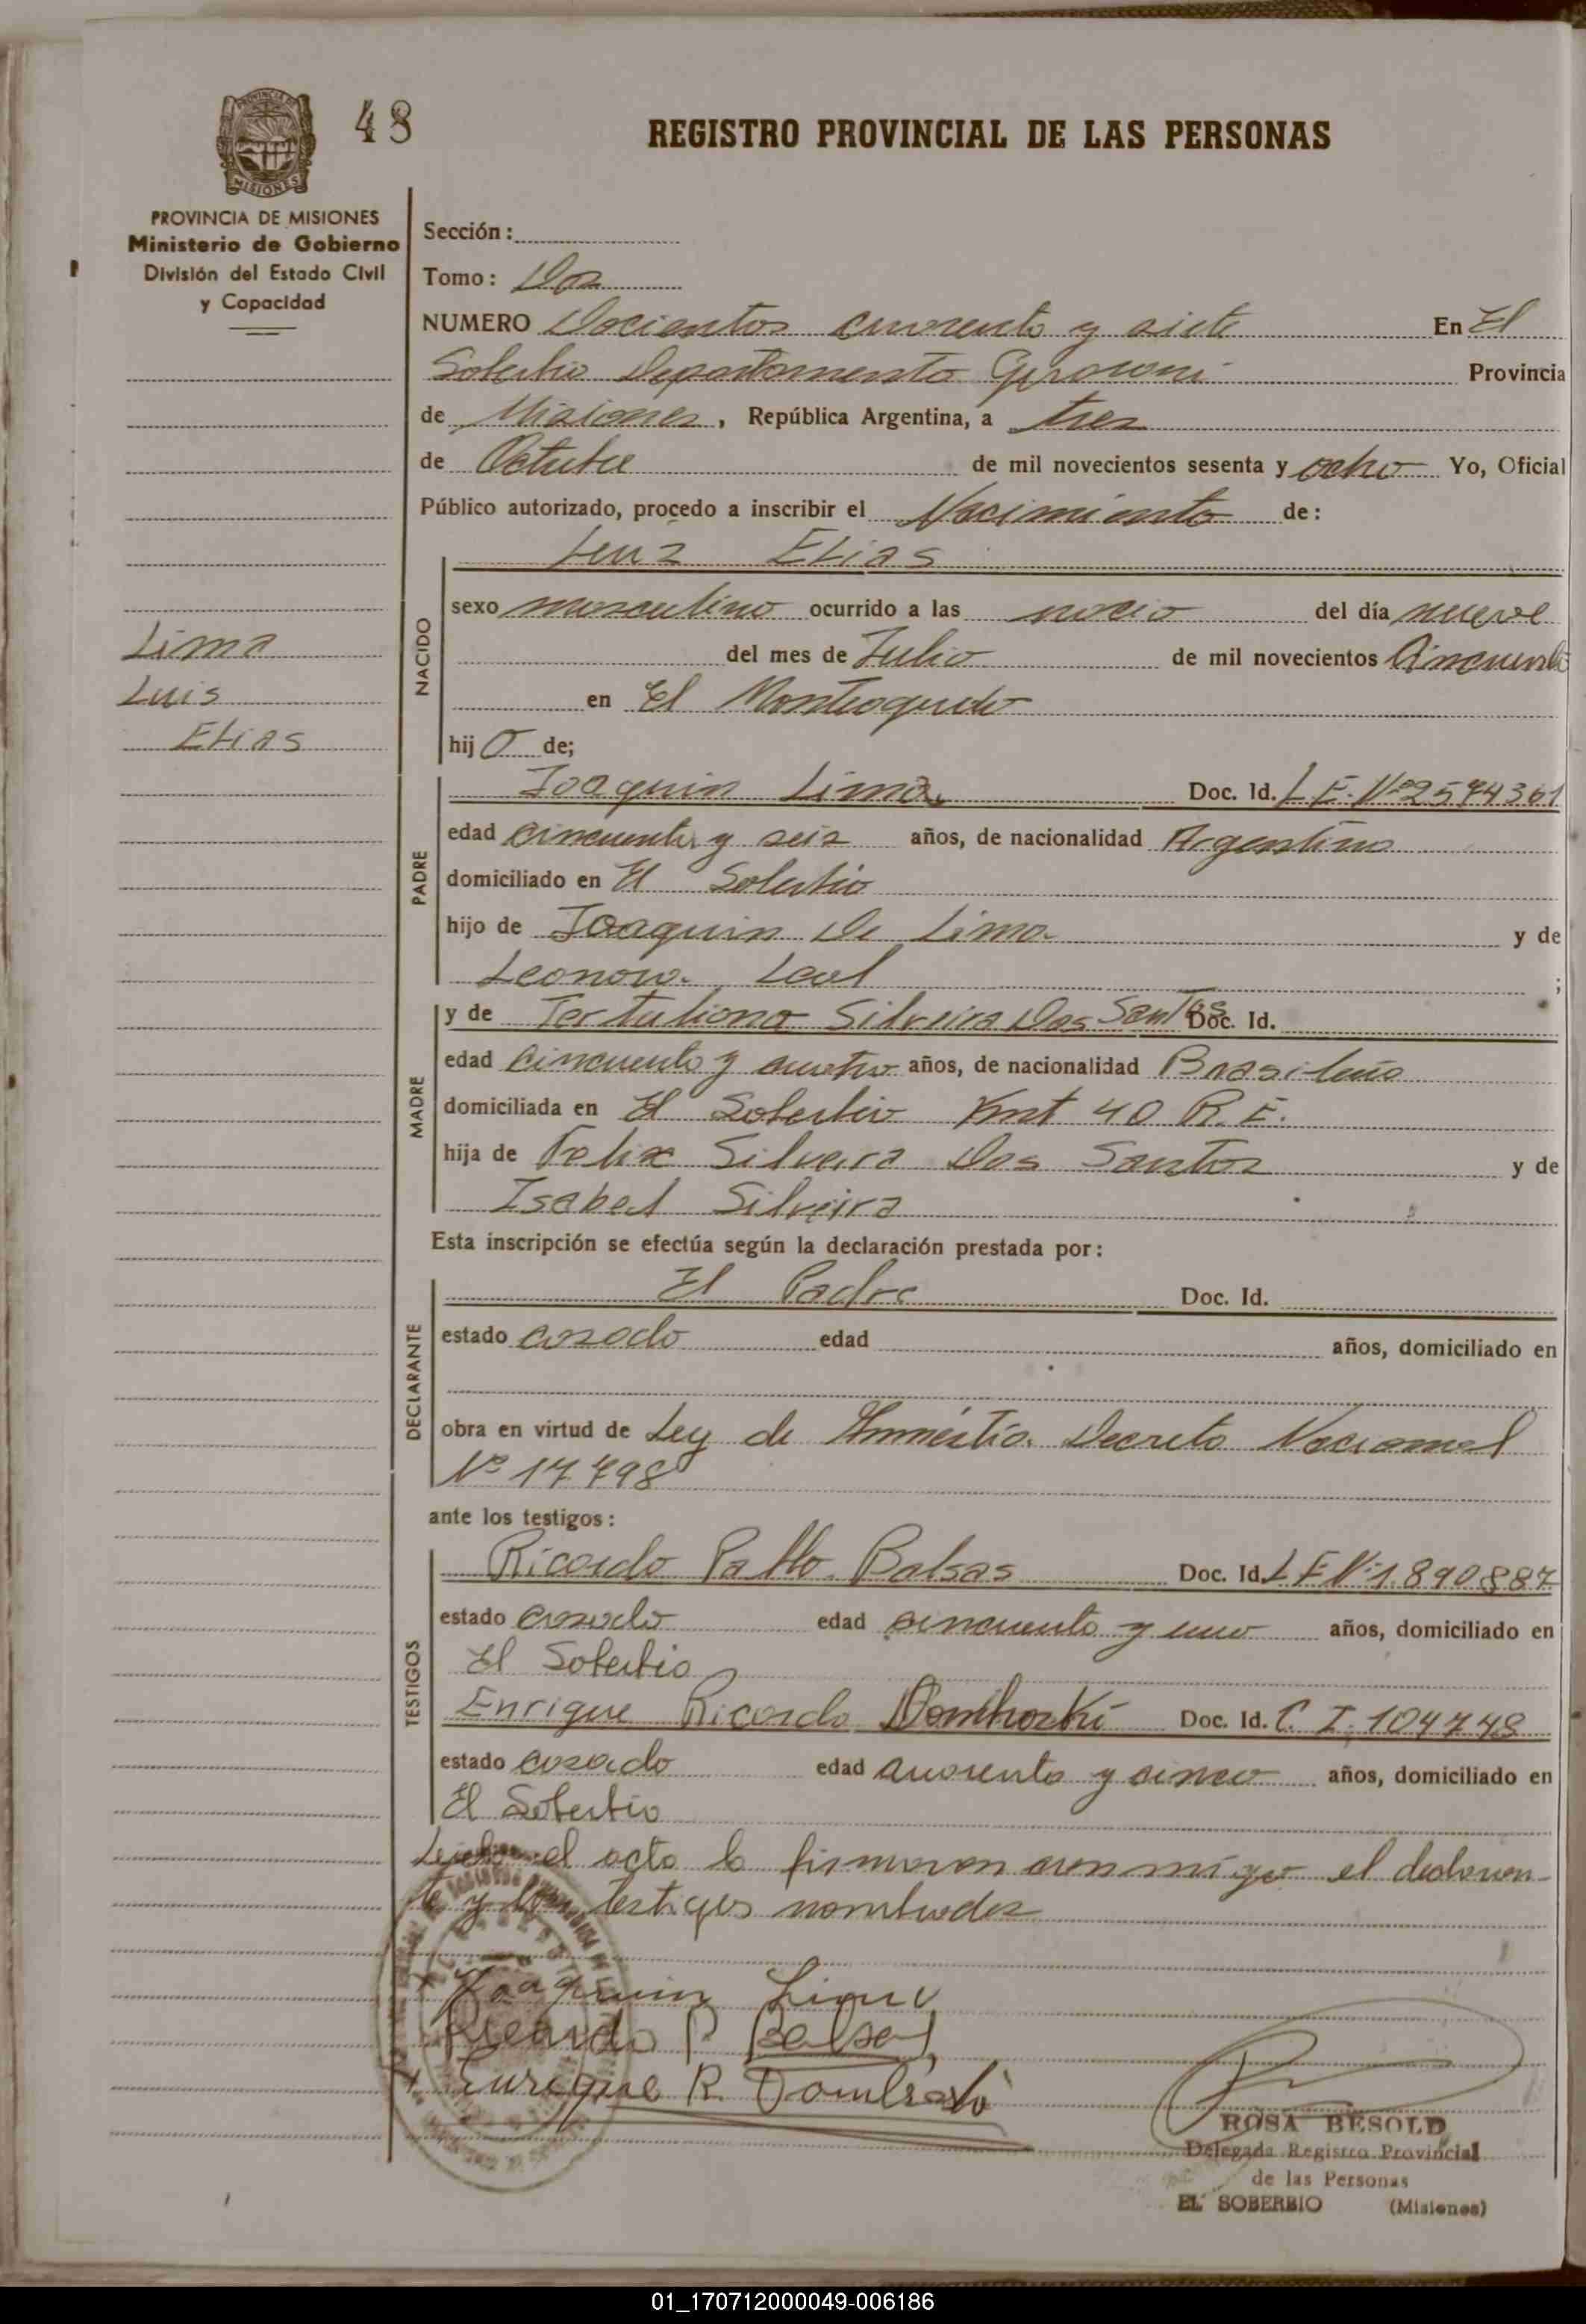 48
REGISTRO PROVINCIAL DE LAS PERSONAS
PROVINCIA DE MISIONES
MISIONES
PROVINCIA DE MISIONES
Ministerio de Gobierno
División del Estado Civil
y Capacidad
Lima
Luis
Elias
Sección:
Tomo: Dos
NUMERO Docientos cuarenta y siete En El
Soberbio Departamento Guarani Provincia
de Misiones, República Argentina, a tres
de Octubre de mil novecientos sesenta y ocho Yo, Oficial
Público autorizado, procedo a inscribir el Nacimiento de:
Luis Elias
NACIDO
sexo masculino ocurrido a las del día nueve
del mes de Julio de mil novecientos cincuenta
en El
hijo de;
PADRE
Joaquin Lima Doc. Id. L E. Nº 2574361
edad cincuenta y seis años, de nacionalidad Argentina
domiciliado en El Soberbio
hijo de Joaquin De Lima y de
Leonora Leal ;
MADRE
y de Tertuliana Silveira Dos Santos Doc. Id.
edad cincuenta y cuatro años, de nacionalidad Brasileña
domiciliada en El Soberbio Kmt 40 R. E.
hija de Felix Silveira Dos Santos y de
Isabel Silveira
Esta inscripción se efectúa según la declaración prestada por:
DECLARANTE
El Padre Doc. Id.
estado casado edad años, domiciliado en
obra en virtud de Ley de Amnestia Decreto Nacional
Nº 17.798
ante los testigos:
TESTIGOS
Ricardo Pablo Balsas Doc. Id. L E Nº 1.890.887
estado casado edad cincuenta y uno años, domiciliado en
El Soberbio
Enrique Ricardo Doc. Id. C. I. 104748
estado casado edad cuarenta y cinco años, domiciliado en
El Soberbio
el acta la firmaron conmigo el declaran-
te y los testigos nombrados
Joaquin Lima
Ricardo P Balsas
Enrique R.
ROSA BESOLD
Delegada Registro Provincial
de las Personas
EL SOBERBIO (Misiones)
01_170712000049-006186